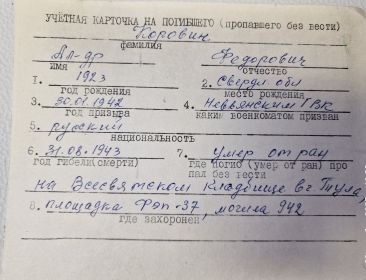 УЧЁТНАЯ КАРТОЧКА НА ПОГИБШЕГО (пропавшего без вести)
Коровин
фамилия
Ал-др Федорович
имя отчество
1. 1923 2. Свердл. обл
год рождения место рождения
3. 30.01.1942 4. Невьянским ГВК
год призыва каким военкоматом призван
5. русский
национальность
6. 31.08.1943 7. Умер от ран
год гибели(смерти) где погиб (умер от ран) про
пал без вести
на Всесвятском кладбище в г Тула,
8. площадка Фэп-37, могила 942
где захоронен